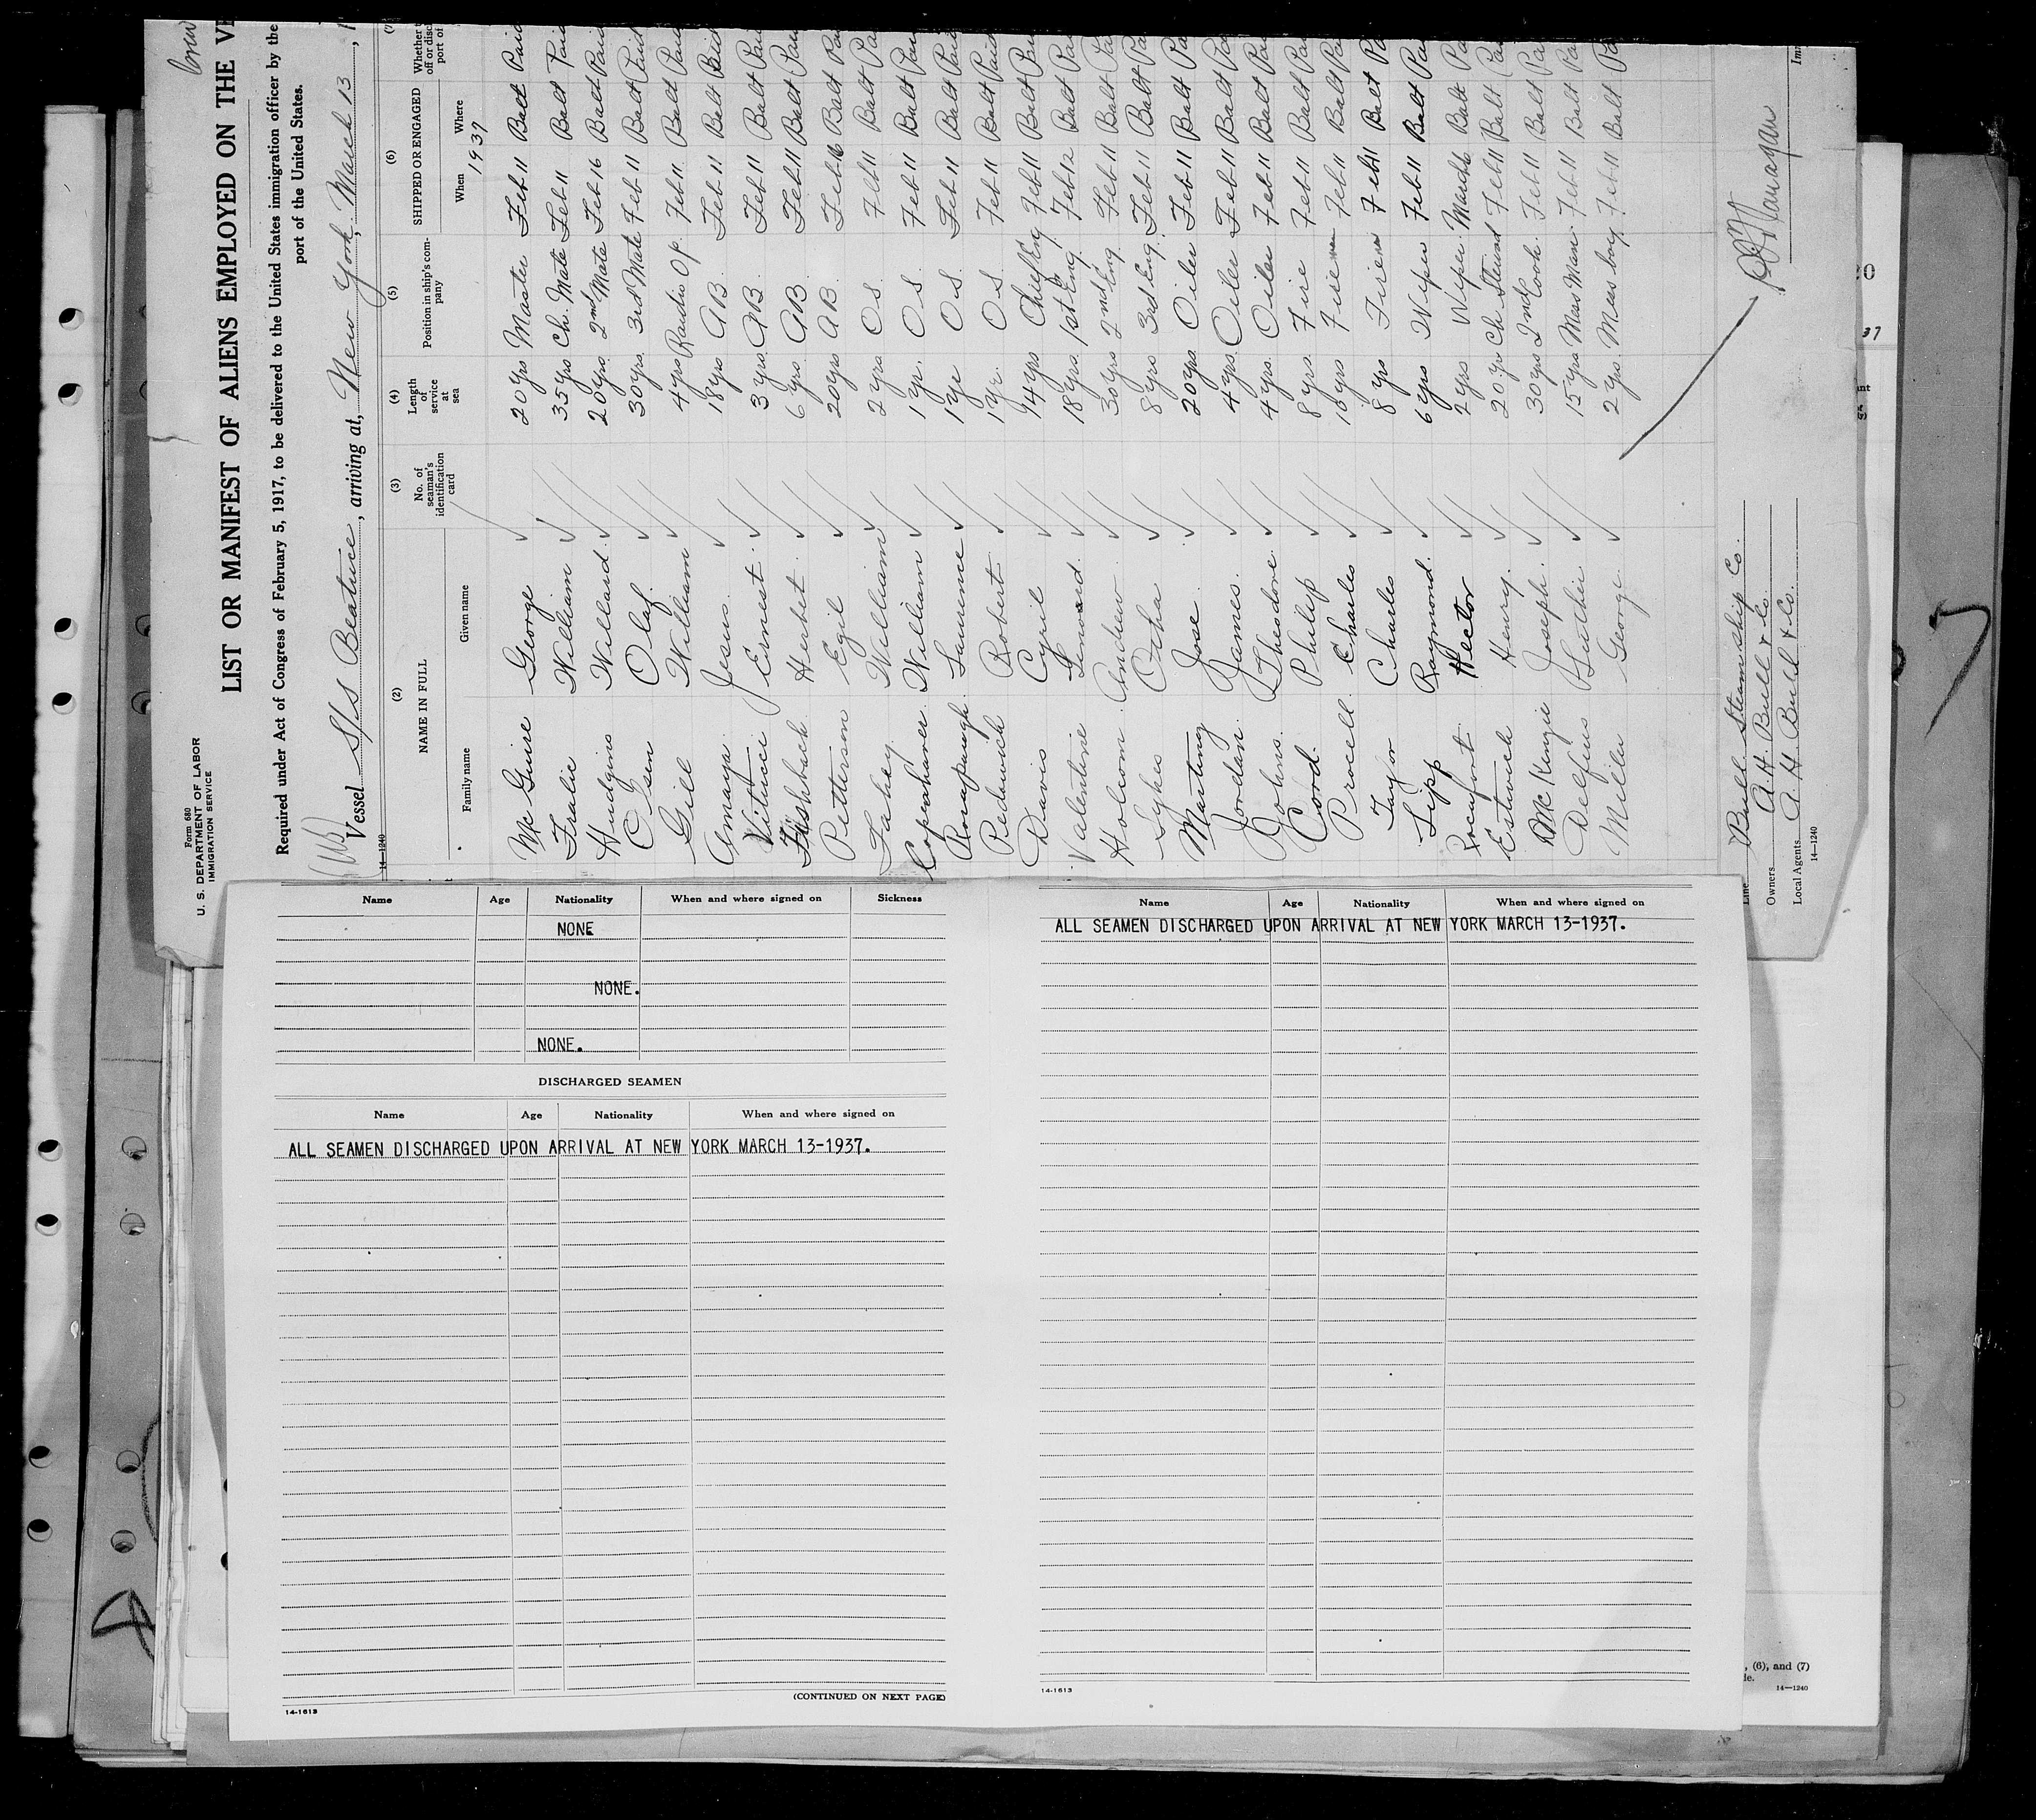 Form 680
U. S. DEPARTMENT OF LABOR
IMMIGRATION SERVICE
LIST OR MANIFEST OF ALIENS EMPLOYED ON THE
Required under Act of Congress of February 5, 1917, to be delivered to the United States immigration officer by the
port of the United States.
Vessel S/S Beatrice, arriving at, New York, March 13
14—1240
(2) (3) (4) (5) (6)
NAME IN FULL No. of seaman's identification card Length of service at sea Position in ship's company SHIPPED OR ENGAGED Whether
Family name Given name When Where
1937
McGuire George 20 yrs Master Feb 11 Balt Paid
Fralic William 35 yrs Ch. Mate Feb 11 Balt Paid
Hudgins Willard 20 yrs. 2nd Mate Feb 16 Balt Paid
Olsen Olaf 30 yrs. 3rd Mate Feb 11 Balt Paid
Gill William 4 yrs Raidio Op. Feb 11. Balt Paid
Amaya Jesus 18 yrs AB. Feb 11 Balt
Vitucci Ernest 3 yrs. AB. Feb 11 Balt Paid
Fishbach Herbet 6 yrs. AB Feb 11 Balt
Petterson Egil 20 yrs AB. Feb Balt
Fahey William 2 yrs O.S. Feb 11 Balt
Copenhaver William 1 yr. O.S. Feb 11 Balt
Rosapaugh Laurence 1 yr O.S. Feb 11 Balt
Pedwich Robert 1 yr. O.S Feb 11 Balt Paid
Davis Cyril 14 yrs Chief Eng Feb 11 Balt
Valentine 18 yrs. 1st Eng. Feb 12 Balt
Holcom Andrew 30 yrs 2nd Eng. Feb 11 Balt
Sykes Otha 8 yrs 3rd Eng. Feb 11 Balt
Martinez Jose 20 yrs Oiler Feb 11 Balt
Jordan James 4 yrs. Oiler Feb 11 Balt
Johns. Theodore 4 yrs. Oiler Feb 11 Balt
Cord. Philip 8 yrs. Fire Feb 11 Balt
Procell Charles 10 yrs Fire Feb 11 Balt
Taylor Charles 8 yrs Fire Feb 11 Balt
Lipp Raymond. 6 yrs Wiper Feb 11 Balt
Hector 2 yrs Wiper. March Balt
Estwick Henry. 20 yr Ch. Steward Feb 11 Balt
McKenzie Joseph. 30 yrs 2nd Cook. Feb 11 Balt
Delfius Luther 15 yrs Mess Man. Feb 11 Balt
Miller George 2 yrs. Mess boy. Feb 11 Balt
Line Bull Steamship Co.
Owners A. H. Bull & Co.
Local Agents A. H. Bull & Co.
14—1240
Name Age Nationality When and where signed on Sickness
NONE
NONE.
NONE.
DISCHARGED SEAMEN
Name Age Nationality When and where signed on
ALL SEAMEN DISCHARGED UPON ARRIVAL AT NEW YORK MARCH 13-1937.
(CONTINUED ON NEXT PAGE)
14-1613
Name Age Nationality When and where signed on
ALL SEAMEN DISCHARGED UPON ARRIVAL AT NEW YORK MARCH 13-1937.
14-1613
, (6), and (7)
14—1240